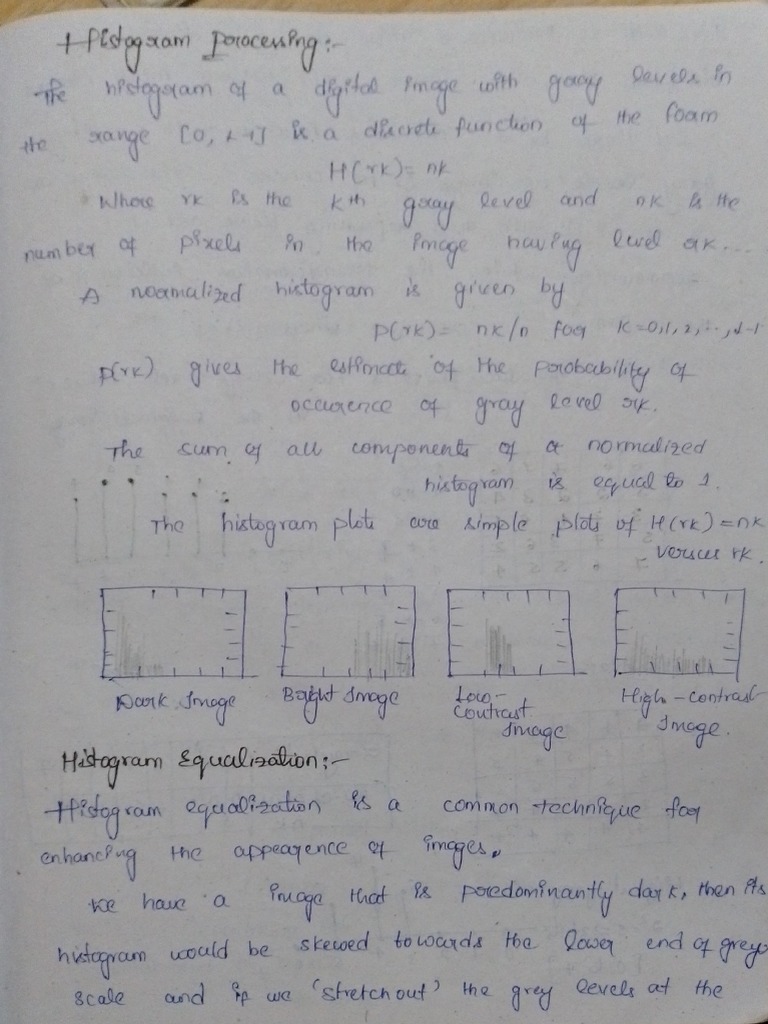 Histogram Processing:-
The histogram of a digital image with gray levels in
the range [0, L-1] is a discrete function of the foam
H(rk)= nk
Where rk is the kth gray level and nk is the
number of pixels in the image having level rk...
A normalized histogram is given by
p(rk)= nk/n for k=0,1,2,..,L-1
p(rk) gives the estimate of the probability of
occurence of gray level rk.
The sum of all components of a normalized
histogram is equal to 1.
The histogram plots are simple plots of H(rk)=nk
versus rk.
Dark Image Bright Image Low- High-contrast
Contrast Image.
Image
Histogram Equalization:-
Histogram equalization is a common technique for
enhancing the appearence of images.
We have a image that is predominantly dark, then its
histogram would be skewed towards the lower end of grey
scale and if we 'stretch out' the grey levels at the